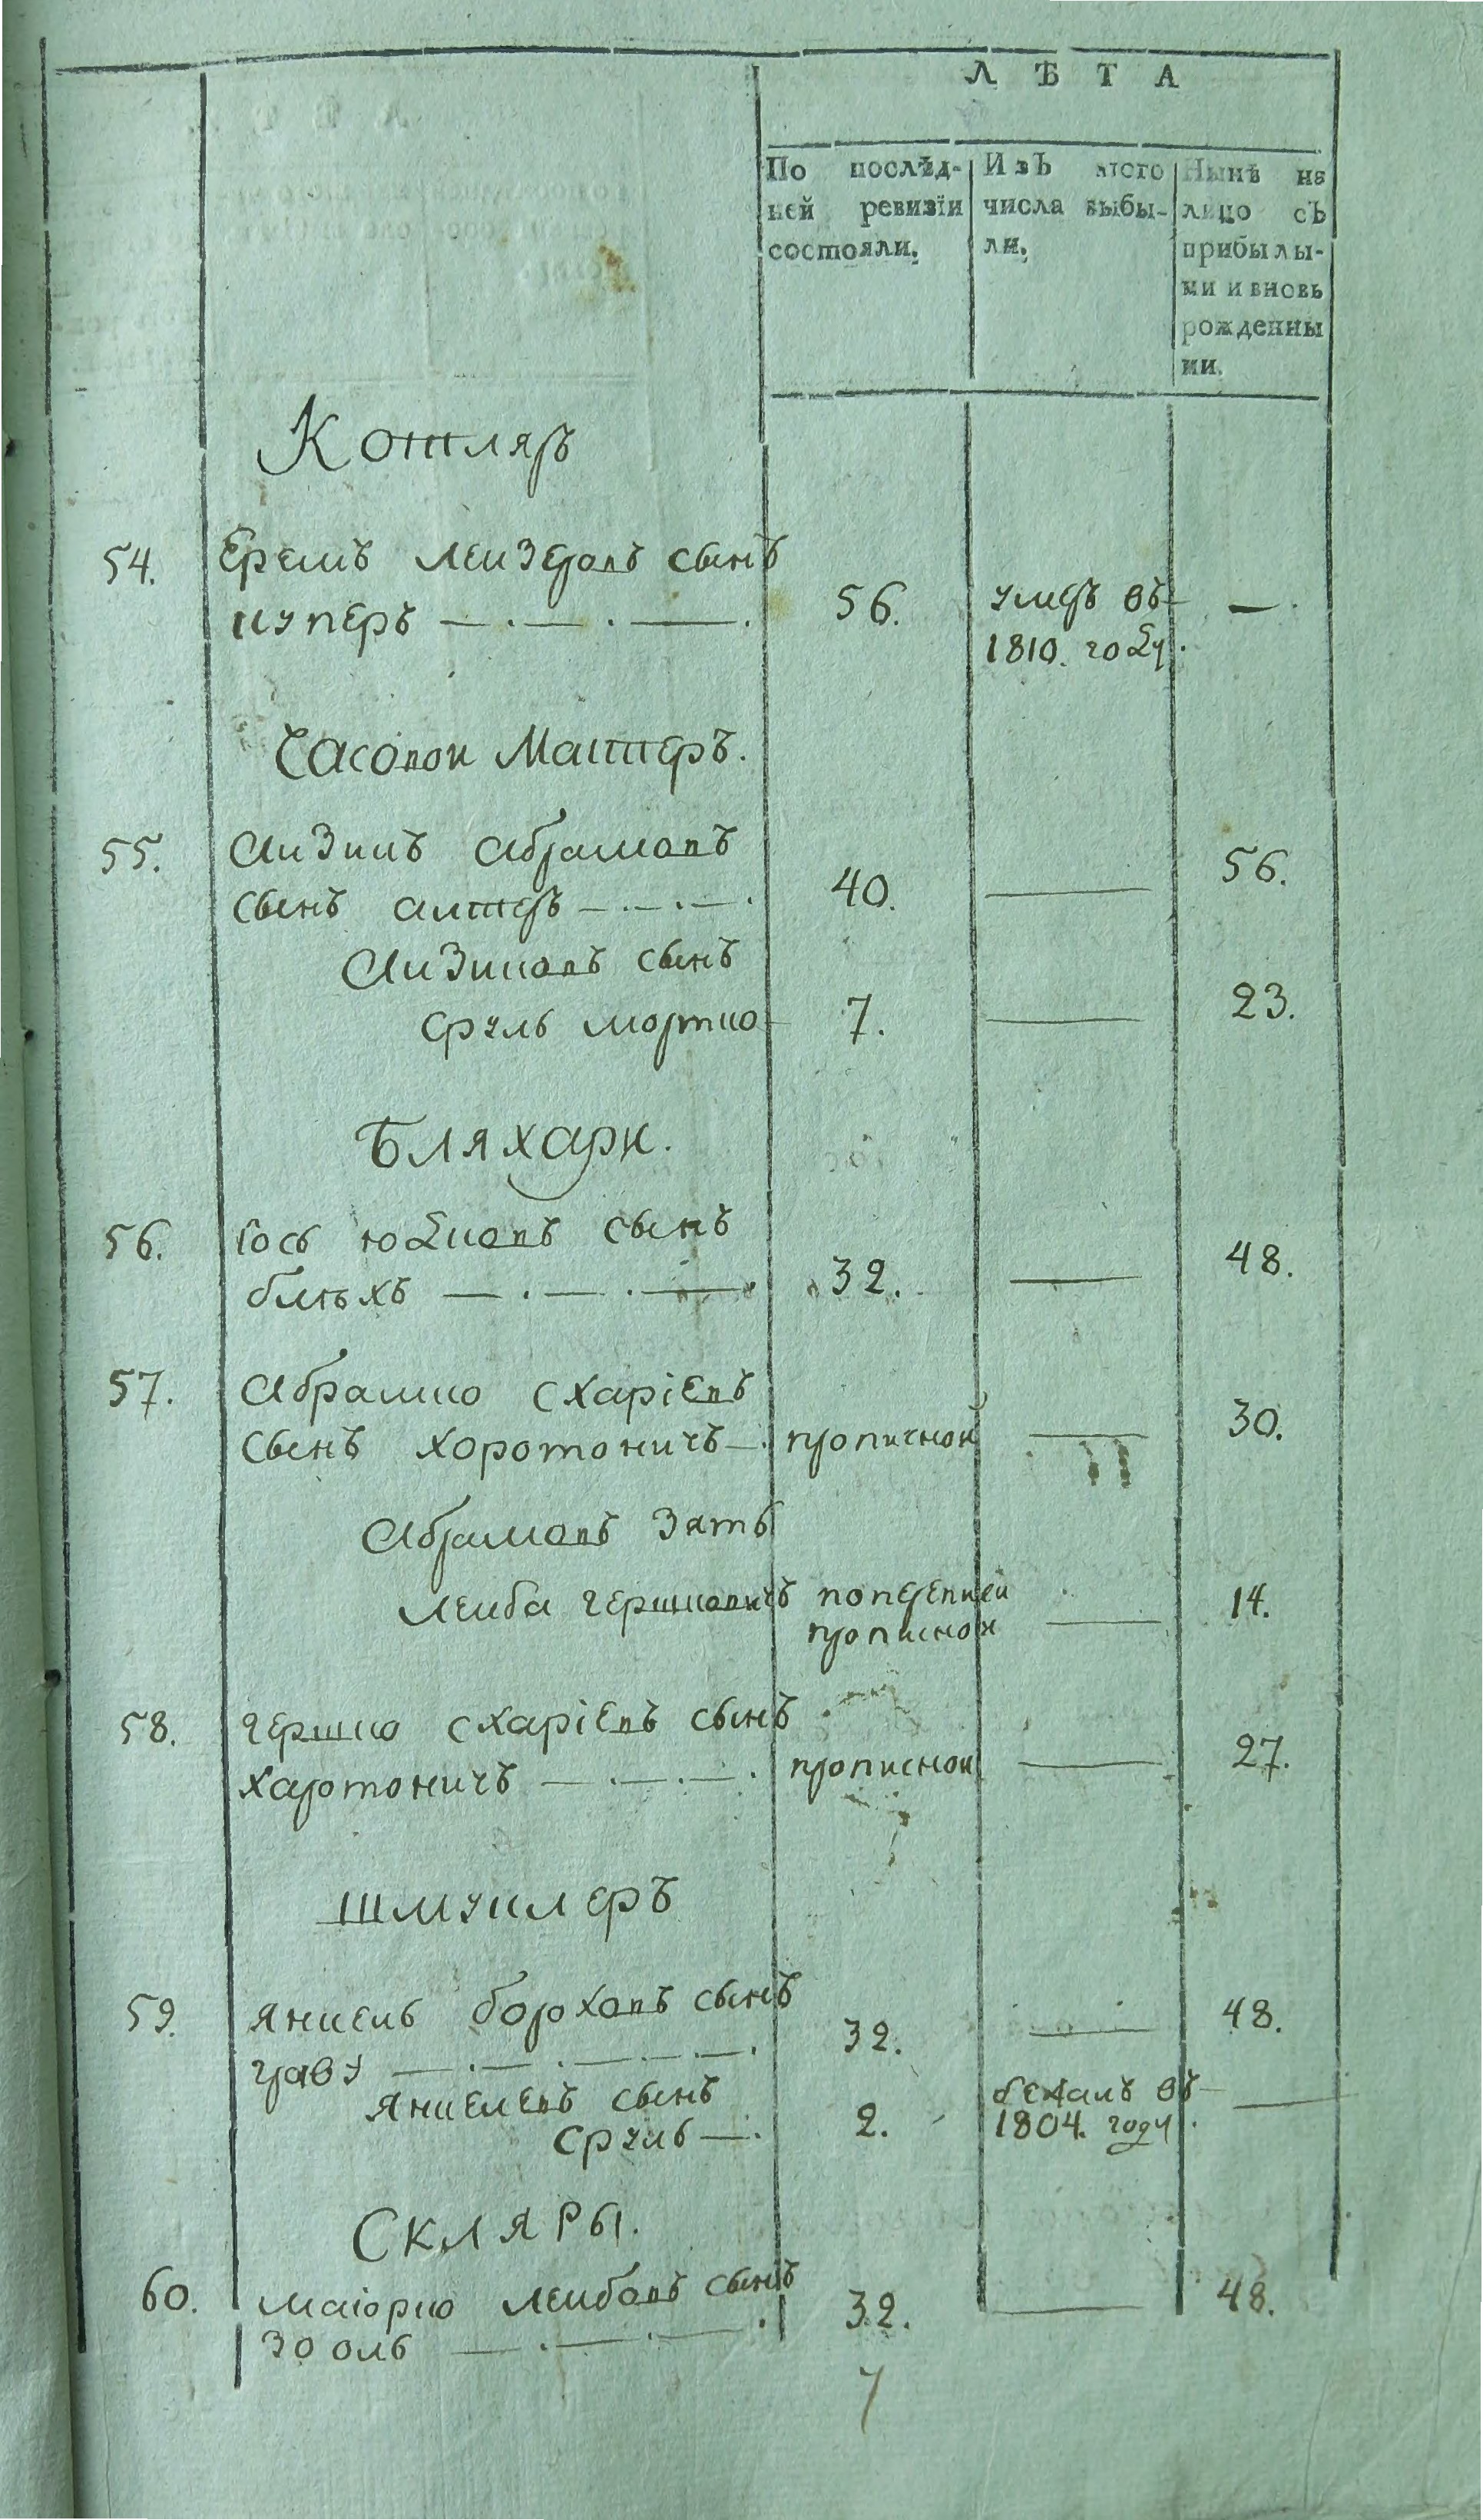 ЛѢТА
По послѣд-
ней ревизіи
состояли.
Изъ этого
числа выбы-
ли.
Нынѣ на
лицо съ
прибылы-
ми и вновь
рожденны
ми.
Котляръ
54. Еремъ Лейзеровъ сынъ
куперъ — . — . — . 56. умеръ въ —
1810. году.
Часовой Мастеръ.
55. Айзикъ Абрамовъ
сынъ алтеръ — . — . — . 40. — 56.
Айзиковъ сынъ
Сруль мортко 7. — 23.
Бляхари.
56. Іось Юдковъ сынъ
блѣхъ — . — . — 32. — 48.
57. Абрамко Схаріевъ
сынъ Хоротоничъ — . прописной — 30.
Абрамовъ Зять
Лейба Гершковичъ поперепией
прописной — 14.
58. Гершко Схаріевъ сынъ
Харотоничъ — . — . — . прописной — 27.
Шмуклеръ
59. Янкель Бороховъ сынъ
граву — . — . — . — . 32. — 48.
Янкелевъ сынъ
Сруль — . 2. бежалъ въ —
1804. году.
Скляры.
60. Маіорко Лейбовъ сынъ
Зооль — . — . — . 32. — 48.